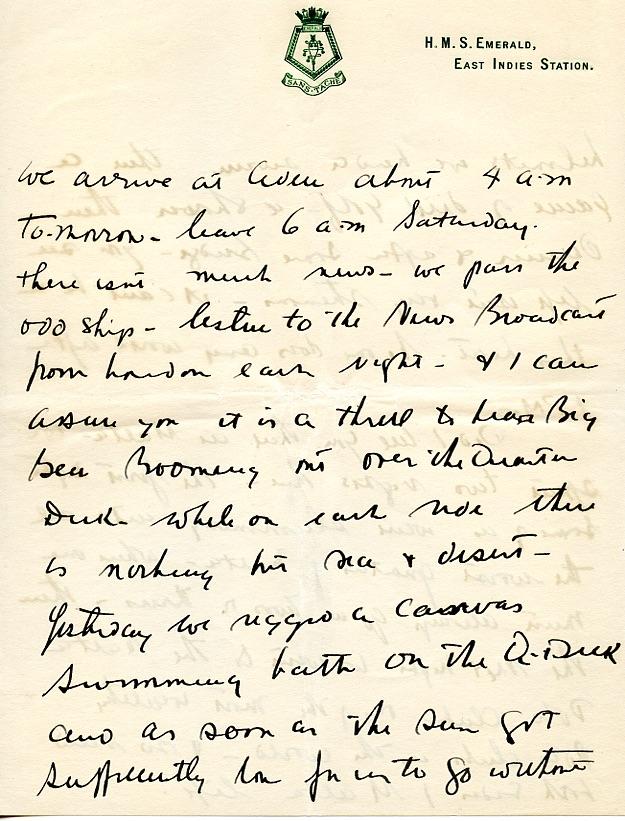 SANS TACHE
H.M.S. EMERALD,
EAST INDIES STATION.
We arrive at Aden about 4 a.m
to-morrow - leave 6 a.m Saturday.
there isnt much news - we pass the
odd ship - listen to the News Broadcast
from London each night - & I can
assure you it is a thrill to hear Big
Ben Booming out over the Quarter
Deck - while on each side there
is nothing but sea & desert -
Yesterday we rigged a canvas
swimming bath on the Q-Deck
and as soon as the sun got
sufficiently low for us to go without